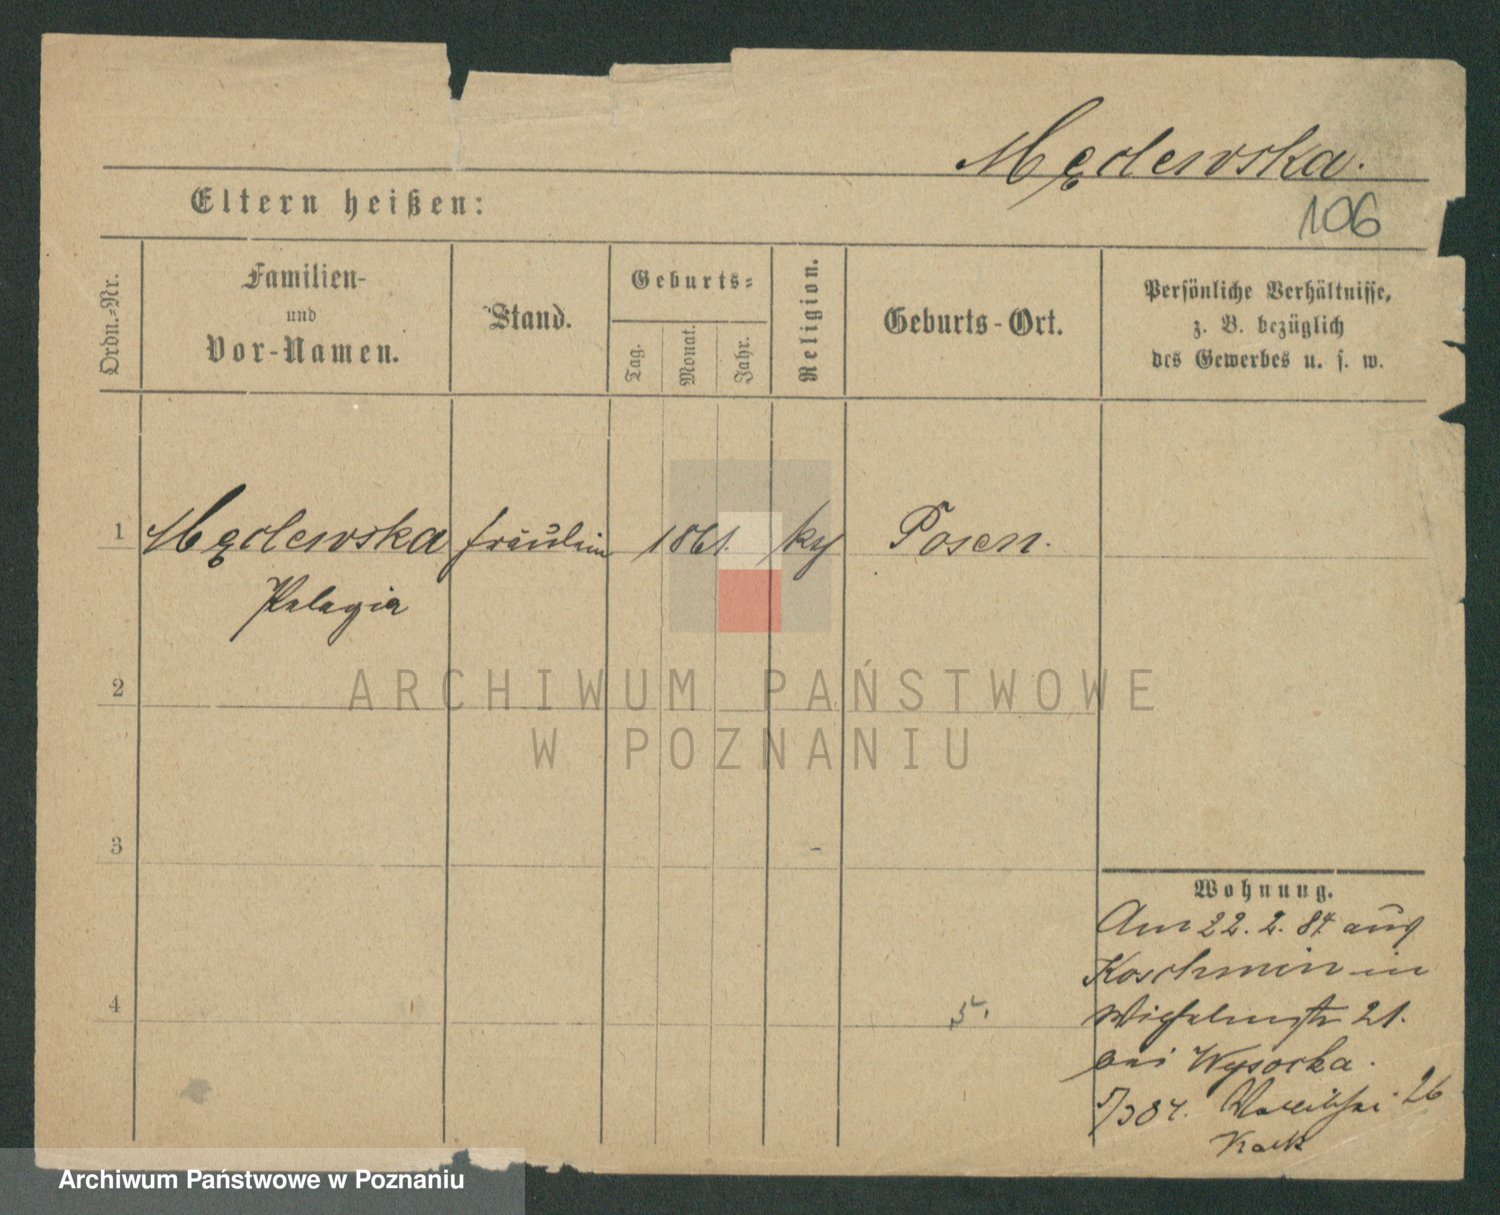 Mędlewska.
106
Eltern heißen:
Ordn.-Nr.
Familien-
und
Vor-Namen.
Stand.
Geburts-
Tag.
Monat.
Jahr.
Religion.
Geburts-Ort.
Persönliche Verhältnisse,
z. B. bezüglich
des Gewerbes u. s. w.
1 Mędlewska fräulein 1861. ky Posen.
Pelagia
2
ARCHIWUM PAŃSTWOWE
W POZNANIU
3
Wohnung.
Am 22. 2. 84 aus
Koschmin in
4
5.
Wilhelmstr 21.
bei Wysocka.
5/3 84. 26
Archiwum Państwowe w Poznaniu